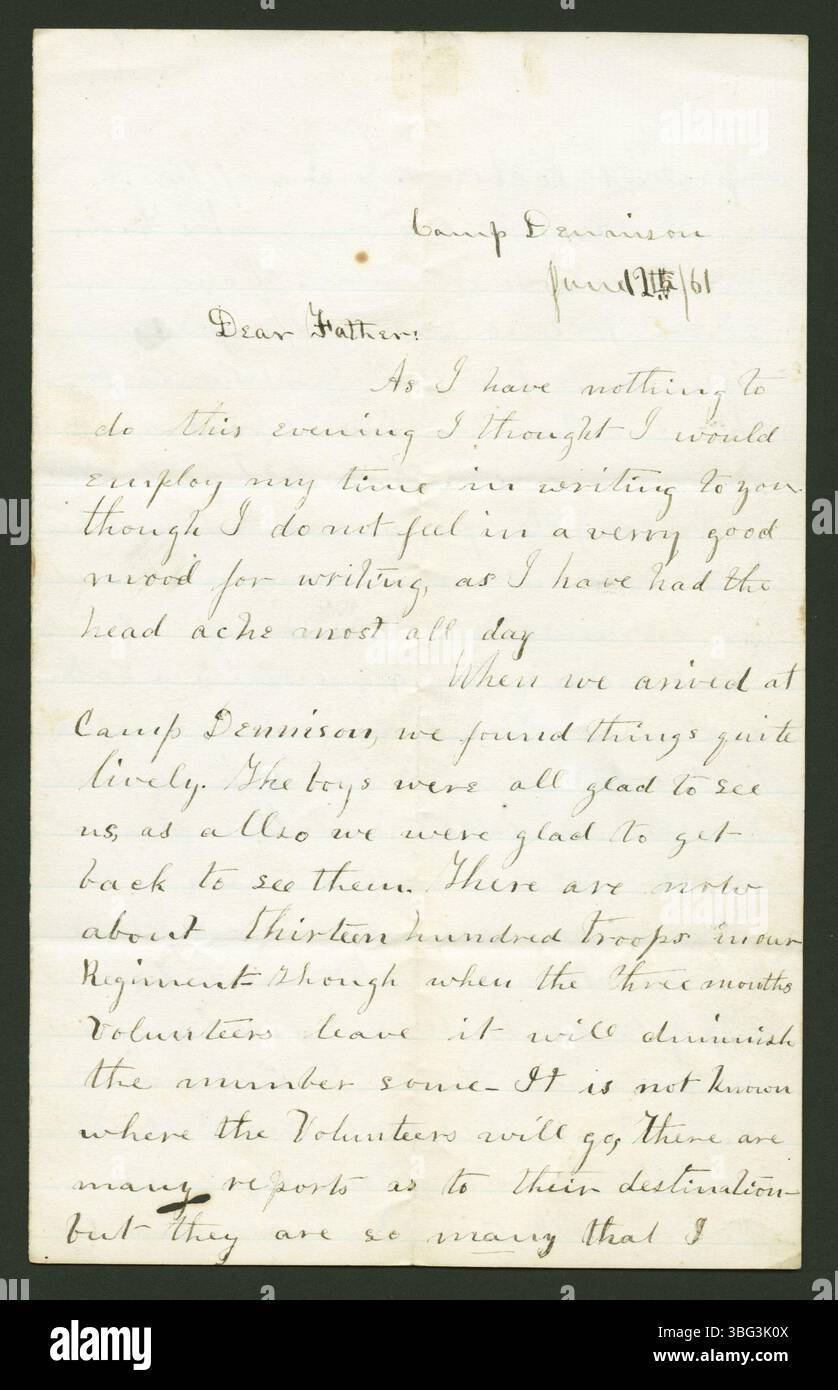 Camp Dennison
June 12th/61
Dear Father:
As I have nothing to
do this evening I thought I would
employ my time in writing to you
though I do not feel in a verry good
mood for writing, as I have had the
head ache most all day
When we arived at
Camp Dennison, we found things quite
lively. The boys were all glad to see
us, as allso we were glad to get
back to see them. There are now
about thirteen hundred troops in our
Regiment - though when the three months
Volunteers leave it will diminish
the number some - It is not known
where the Volunteers will go, there are
many reports as to their destination -
but they are so many that I
alamy
Image ID: 3BG3K0X
www.alamy.com